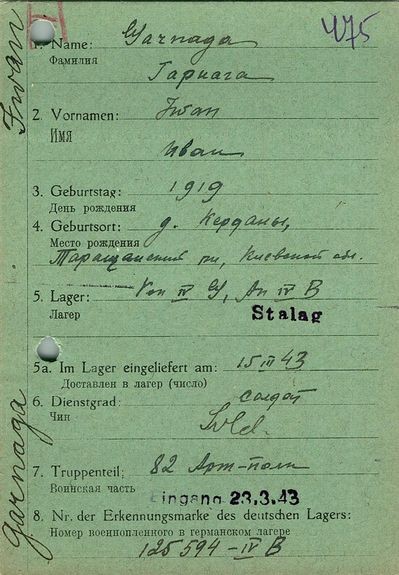 475
1. Name: Garnaga
Фамилия Гарнага
2. Vornamen: Iwan
Имя Иван
3. Geburtstag: 1919
День рождения
4. Geburtsort: д. Керданы,
Место рождения
Таращанский рн, Киевской обл.
5. Lager: Von IV G, An IV B
Лагер Stalag
5a. Im Lager eingeliefert am: 15 III 43
Доставлен в лагер (число)
6. Dienstgrad: солдат
Чин Sold.
7. Truppenteil: 82 Арт-полк
Воинская часть Eingang 23.3.43
8. Nr. der Erkennungsmarke des deutschen Lagers:
Номер военнопленного в германском лагере
125594-IV B
Iwan
Garnaga